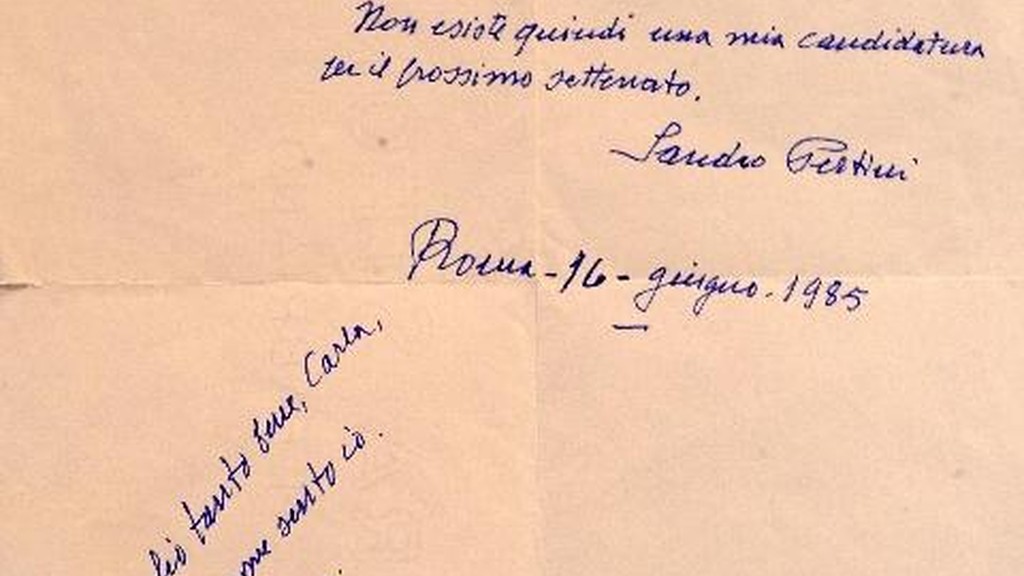 Non esiste quindi una mia candidatura
per il prossimo settennato.
Sandro Pertini
Roma - 16 - giugno. 1985
tanto bene, Carla,
sento io.